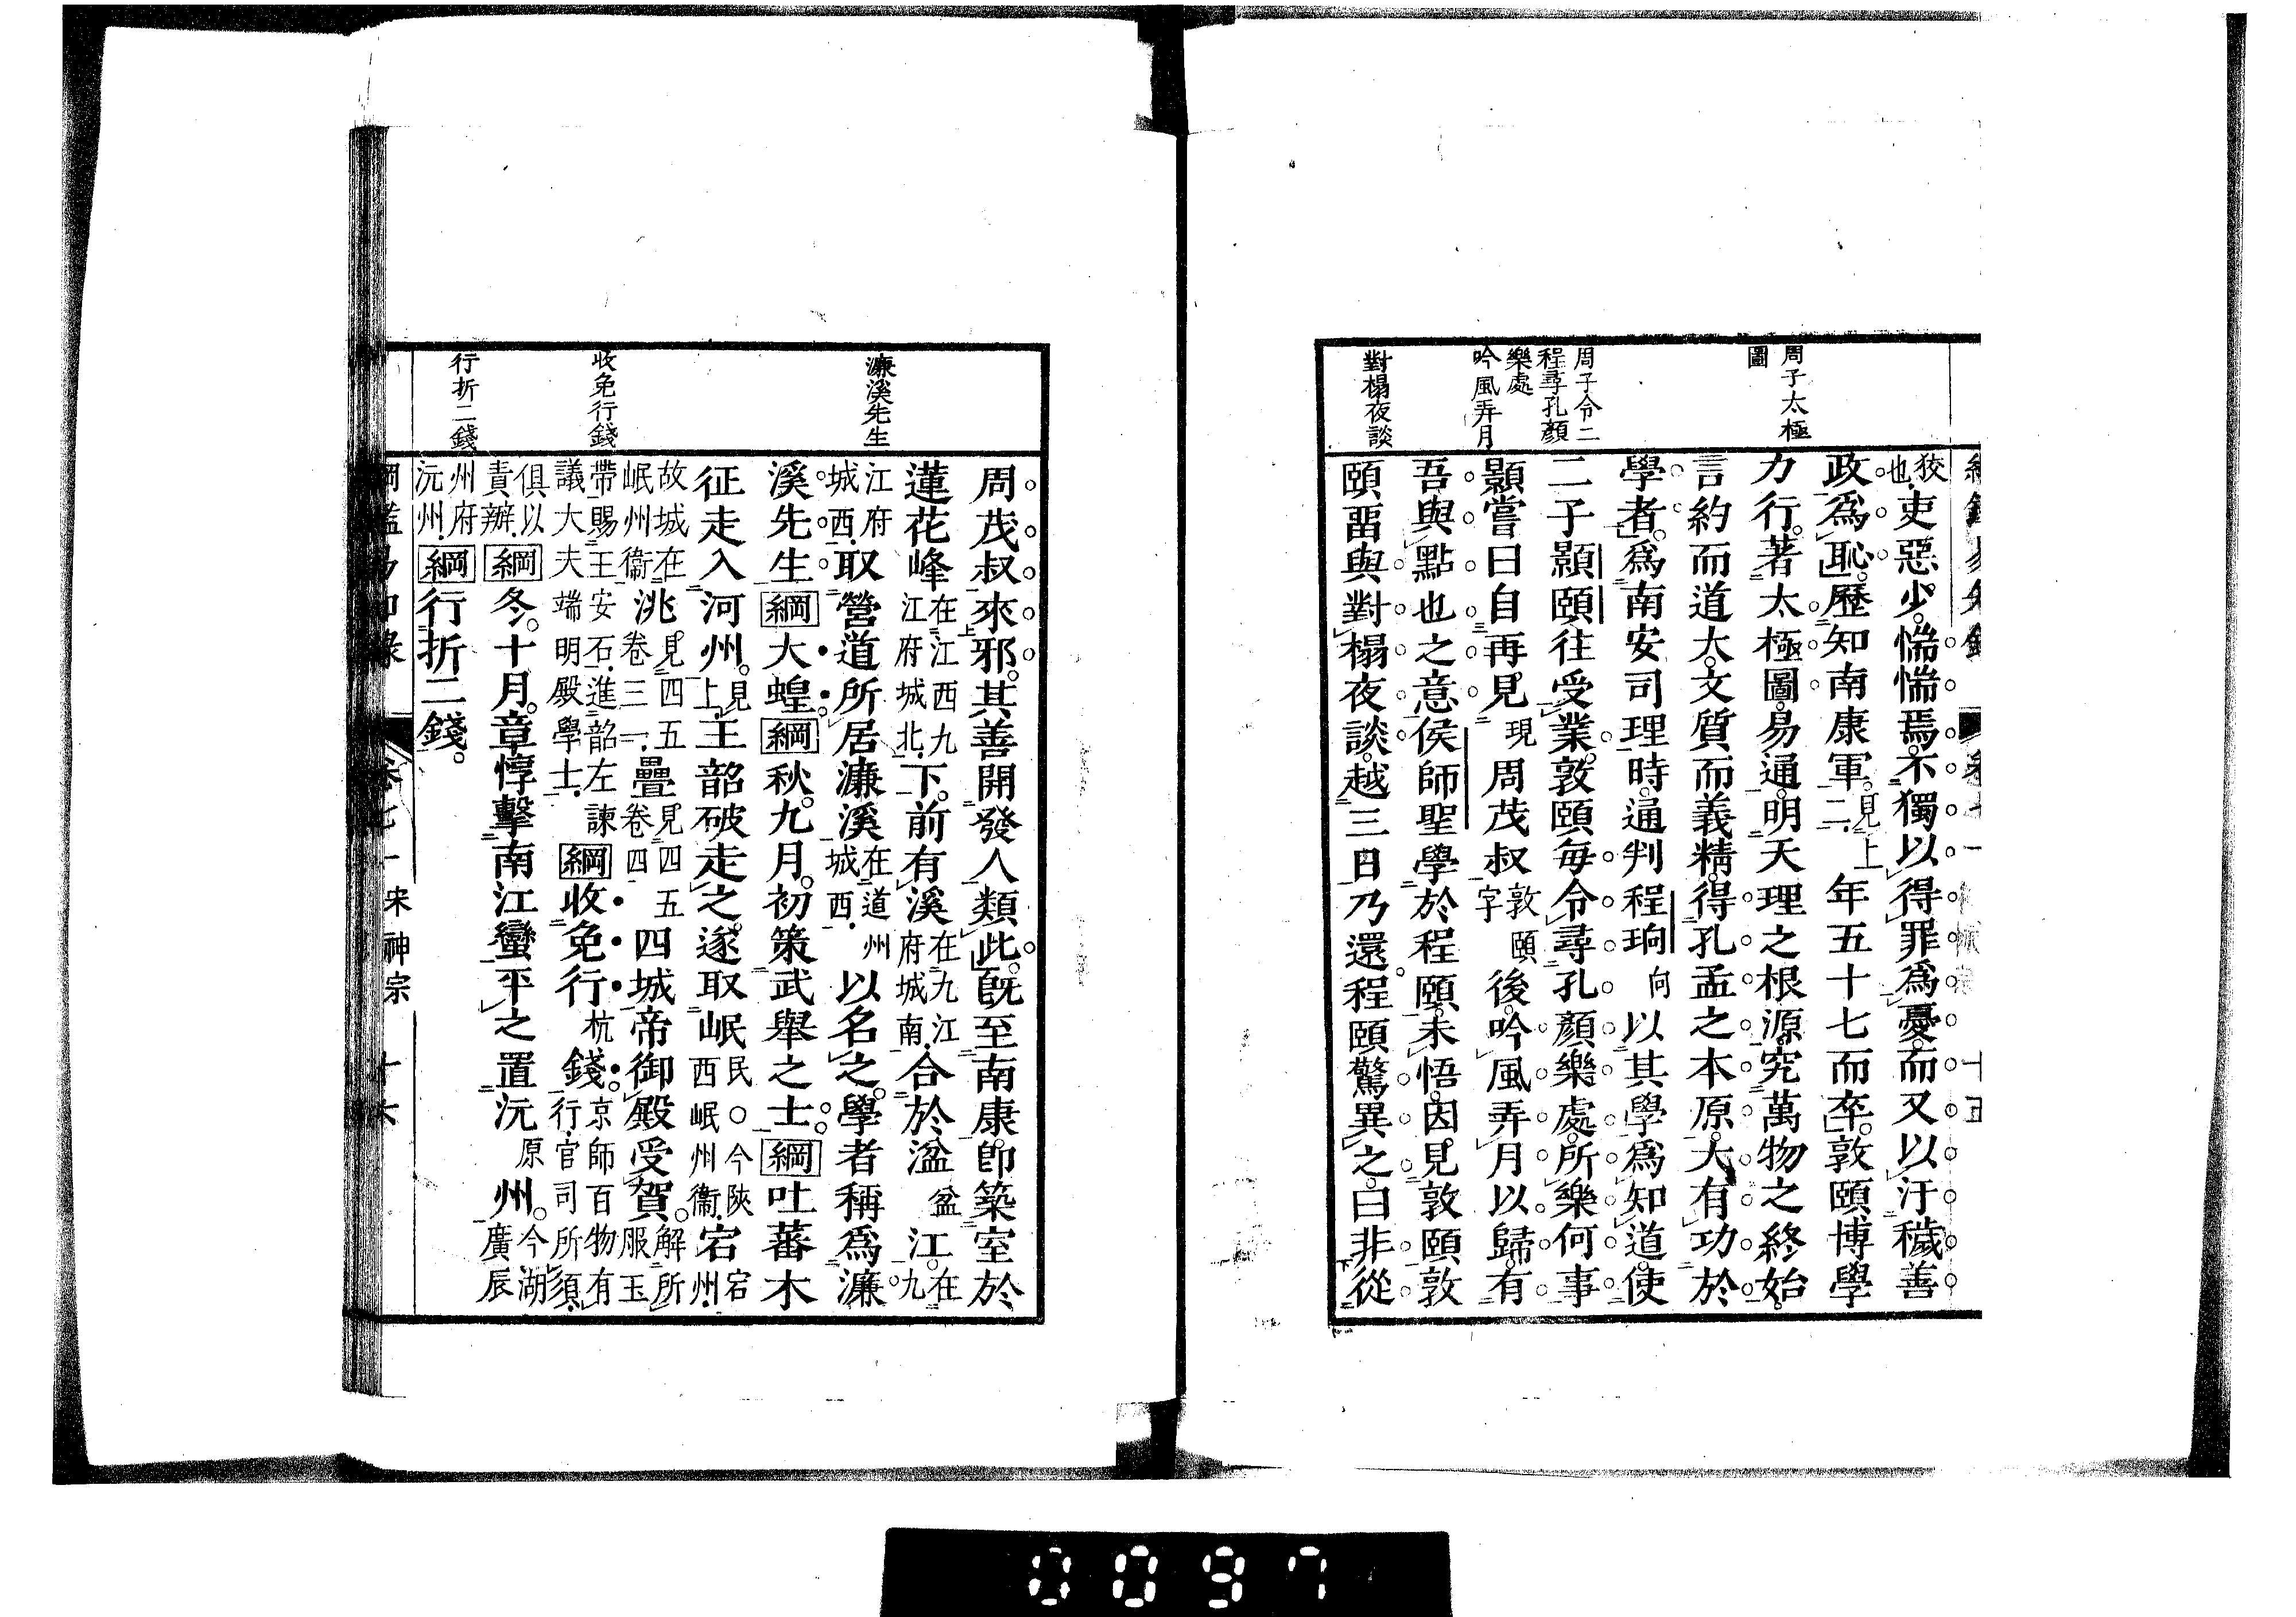 周子太極
圖
周子令二
程尋孔顏
樂處
吟風弄月
對榻夜談
狡也吏惡少惴惴焉不獨以得罪爲憂而又以汙穢善
政爲恥歷知南康軍見上二年五十七而卒敦頤博學
力行著太極圖易通明天理之根源究萬物之終始
言約而道大文質而義精得孔孟之本原大有功於
學者爲南安司理時通判程珦向以其學爲知道使
二子顥頤往受業敦頤每令尋孔顏樂處所樂何事
顥嘗曰自再見現周茂叔敦頤字後吟風弄月以歸有
吾與點也之意侯師聖學於程頤未悟因見敦頤敦
頤畱與對榻夜談越三日乃還程頤驚異之曰非從
濂溪先生
收免行錢
行折二錢
周茂叔來邪其善開發人類此旣至南康卽築室於
蓮花峰在江西九江府城北下前有溪在九江府城南合於湓盆江在九
江府城西取營道所居濂溪在道州城西以名之學者稱爲濂
溪先生綱大蝗綱秋九月初策武舉之士綱吐蕃木
征走入河州見上王韶破走之遂取岷民○今陝西岷州衞宕宕州
故城在岷州衞洮見四五卷三一疊見四五卷四四城帝御殿受賀解所服玉
帶賜王安石進韶左諫議大夫端明殿學士綱收免行杭錢京師百物有行官司所須
俱以責辦綱冬十月章惇擊南江蠻平之置沅原州今湖廣辰
州府沅州綱行折二錢
卷七一 宋神宗 十六
0097